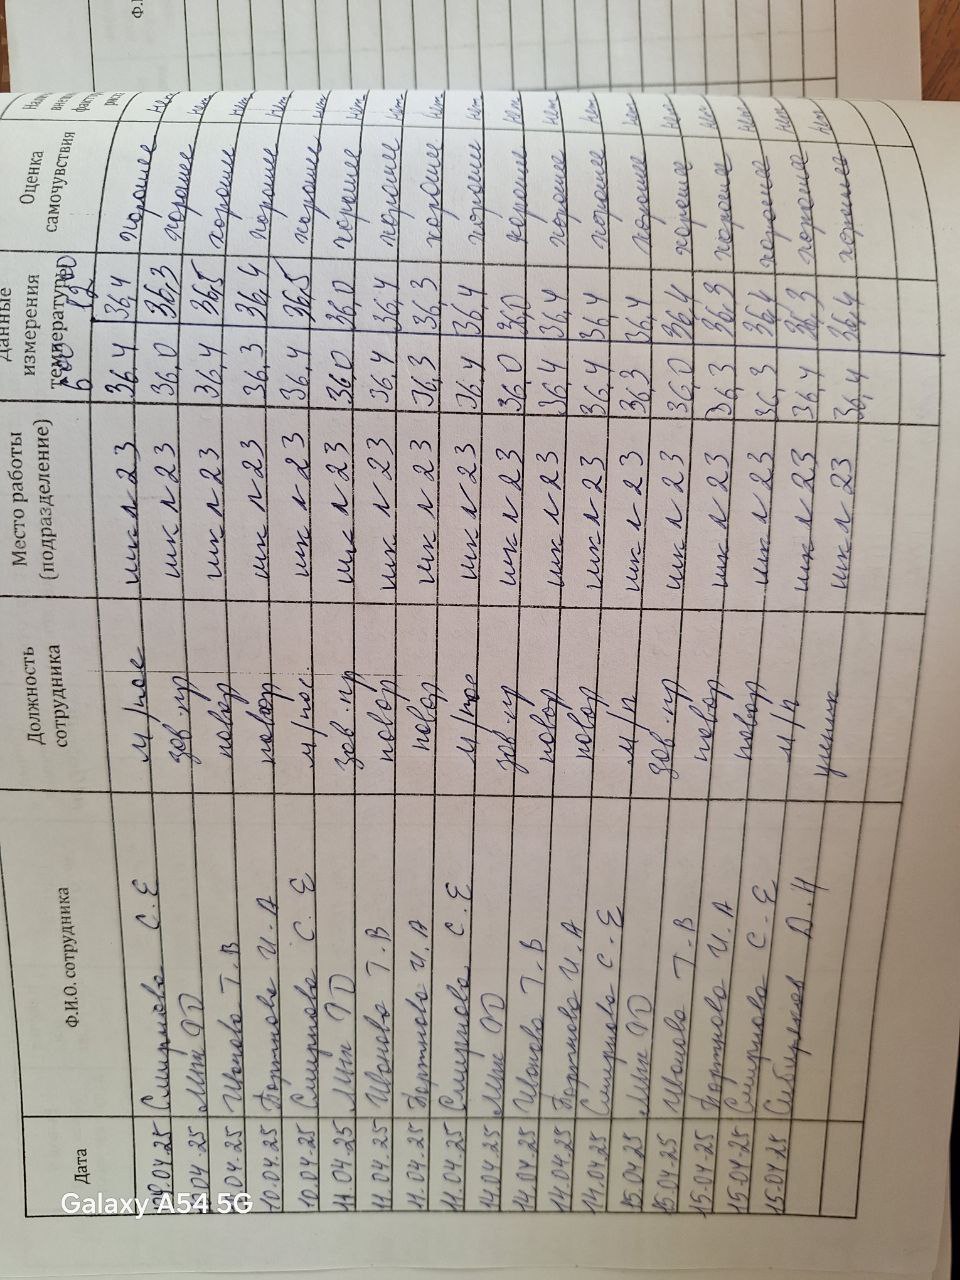 Дата Ф.И.О. сотрудника Должность сотрудника Место работы (подразделение) Данные измерения температуры Оценка самочувствия
6 00 12 00
09.04.25 Смирнова С.Е м/пос шк N 23 36,4 36,4 хорошее нет
10.04.25 зав.пр шк N 23 36,0 36,3 хорошее нет
10.04.25 Иванова Т.В повар шк N 23 36,4 36,5 хорошее нет
10.04.25 Бортнова И.А повар шк N 23 36,3 36,4 хорошее нет
10.04.25 Смирнова С.Е м/пос. шк N 23 36,4 36,5 хорошее нет
11.04.25 зав.пр шк N 23 36,0 36,0 хорошее нет
11.04.25 Иванова Т.В повар шк N 23 36,4 36,4 хорошее нет
11.04.25 Бортнова И.А повар шк N 23 36,3 36,3 хорошее нет
11.04.25 Смирнова С.Е м/пос шк N 23 36,4 36,4 хорошее нет
14.04.25 зав.пр шк N 23 36,0 36,0 хорошее нет
14.04.25 Иванова Т.В повар шк N 23 36,4 36,4 хорошее нет
14.04.25 Бортнова И.А повар шк N 23 36,4 36,4 хорошее нет
14.04.25 Смирнова С.Е м/п шк N 23 36,3 36,4 хорошее нет
15.04.25 зав.пр шк N 23 36,0 36,4 хорошее нет
15.04.25 Иванова Т.В повар шк N 23 36,3 36,3 хорошее нет
15.04.25 Бортнова И.А повар шк N 23 36,3 36,4 хорошее нет
15.04.25 Смирнова С.Е м/п шк N 23 36,4 36,3 хорошее нет
15.04.25 Сибиряков Д.Н шк N 23 36,4 36,4 хорошее нет
Galaxy A54 5G